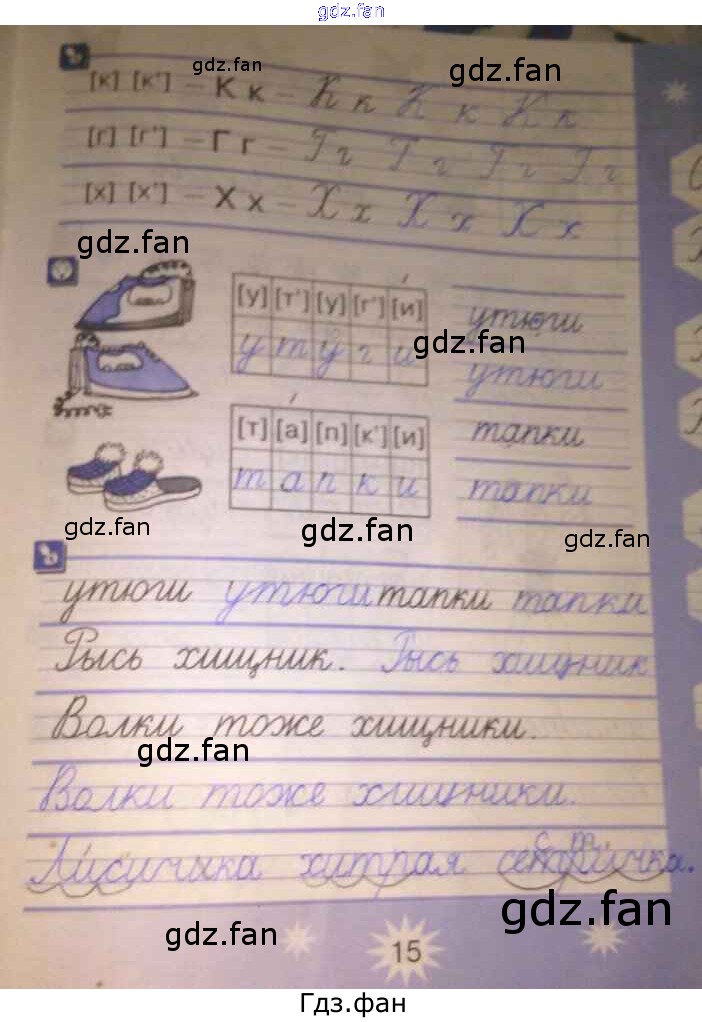 gdz.fan
[к] [к'] – К к – К к К к К к
gdz.fan
gdz.fan
[г] [г'] – Г г – Г г Г г Г г Г г
[х] [х'] – Х х – Х х Х х Х х
gdz.fan
[у] [т'] [у] [г'] [и] утюги
у т у г и утюги
gdz.fan
[т] [а] [п] [к'] [и] тапки
т а п к и тапки
gdz.fan
gdz.fan
gdz.fan
утюги утюги тапки тапки
Рысь хищник. Рысь хищник
Волки тоже хищники.
gdz.fan
Волки тоже хищники.
Лисичка хитрая
gdz.fan
gdz.fan
15
Гдз.фан